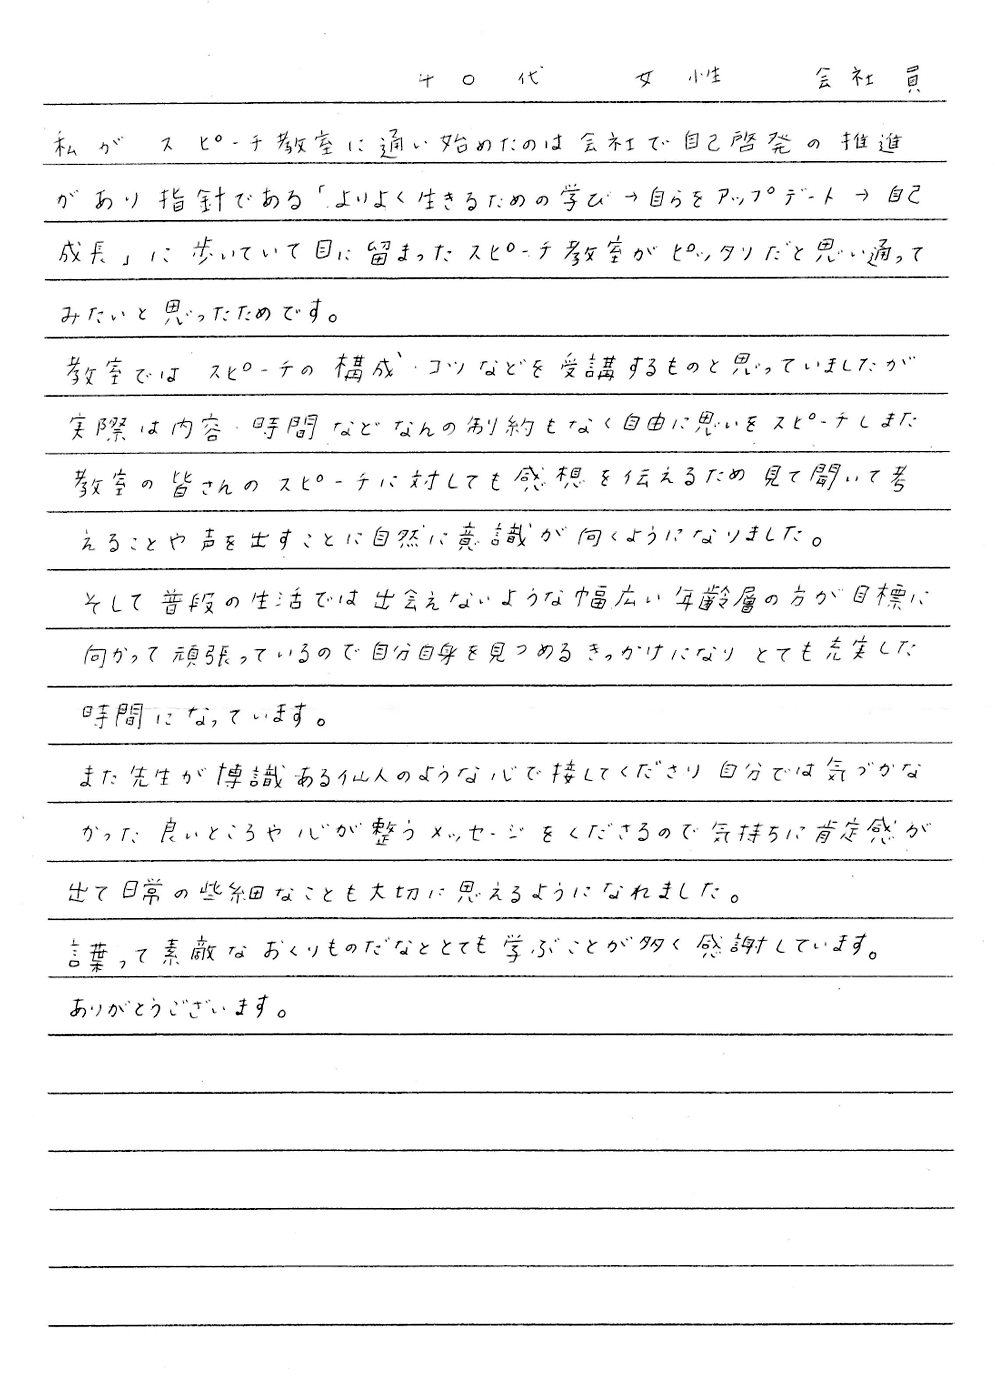 40代 女性 会社員
私が スピーチ教室に通い始めたのは会社で自己啓発の推進
があり指針である「よりよく生きるための学び→自らをアップデート→自己
成長」に歩いていて目に留まったスピーチ教室がピッタリだと思い通って
みたいと思ったためです。
教室では スピーチの構成・コツなどを受講するものと思っていましたが
実際は内容・時間などなんの制約もなく自由に思いをスピーチしまた
教室の皆さんのスピーチに対しても感想を伝えるため見て聞いて考
えることや声を出すことに自然に意識が向くようになりました。
そして普段の生活では出会えないような幅広い年齢層の方が目標に
向かって頑張っているので自分自身を見つめるきっかけになり とても充実した
時間になっています。
また先生が博識ある仙人のような心で接してくださり 自分では気づかな
かった良いところや心が整うメッセージをくださるので気持ちに肯定感が
出て日常の些細なことも大切に思えるようになれました。
言葉って素敵なおくりものだなととても学ぶことが多く感謝しています。
ありがとうございます。